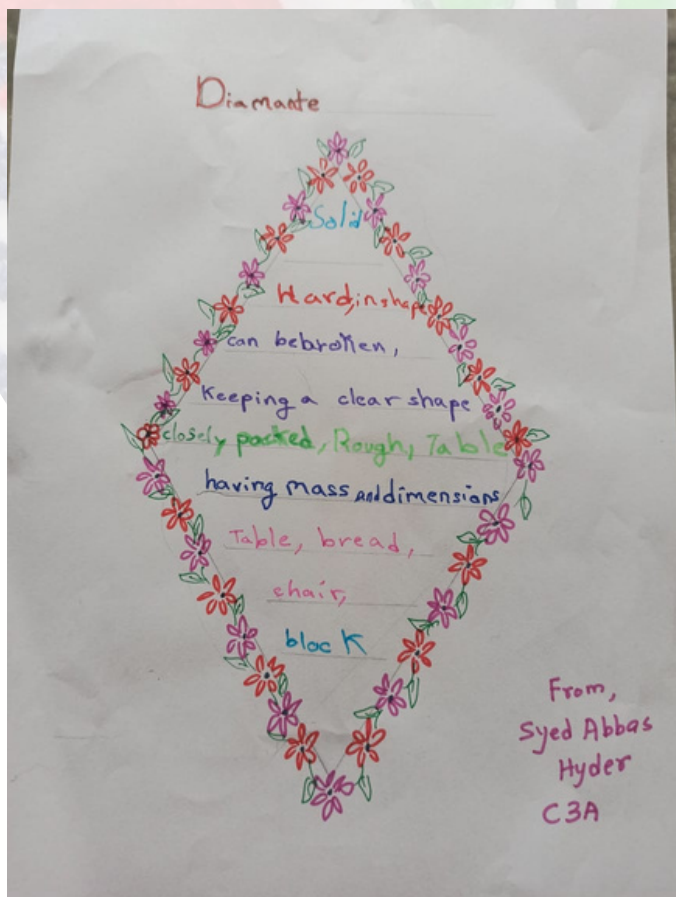 Diamante
Solid
Hard, in shape
can be broken,
Keeping a clear shape
closely packed, Rough, Table
having mass and dimensions
Table, bread,
chair,
block
From,
Syed Abbas
Hyder
C3A